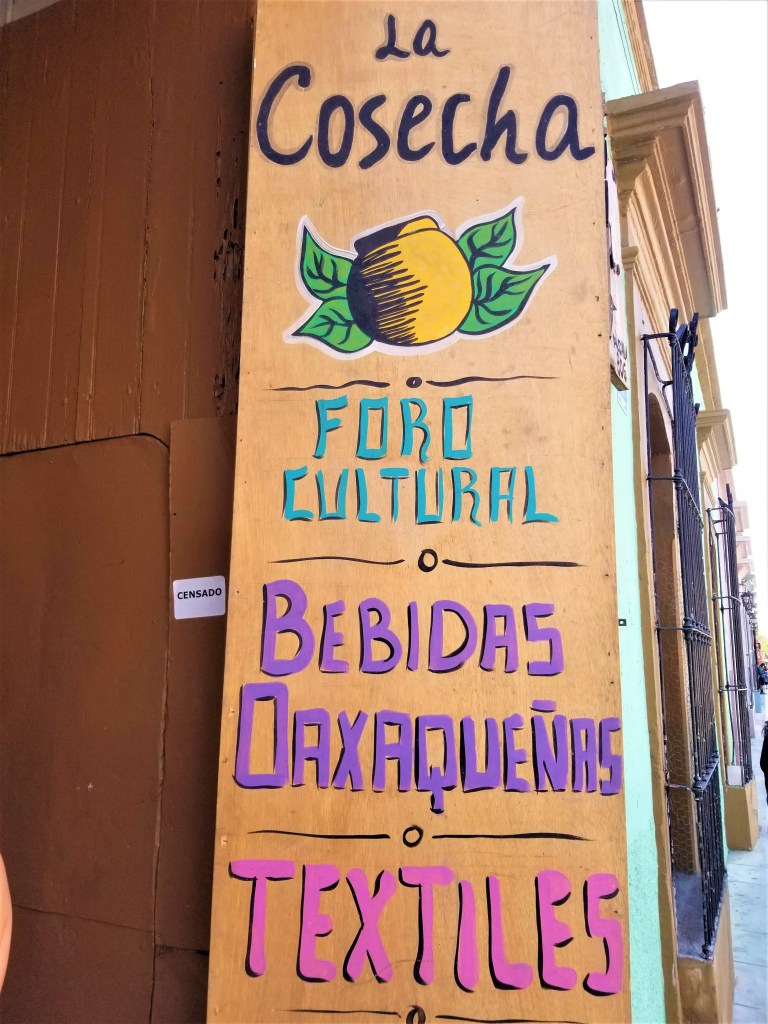 La
Cosecha
FORO
CULTURAL
CENSADO
BEBIDAS
OAXAQUEÑAS
TEXTILES